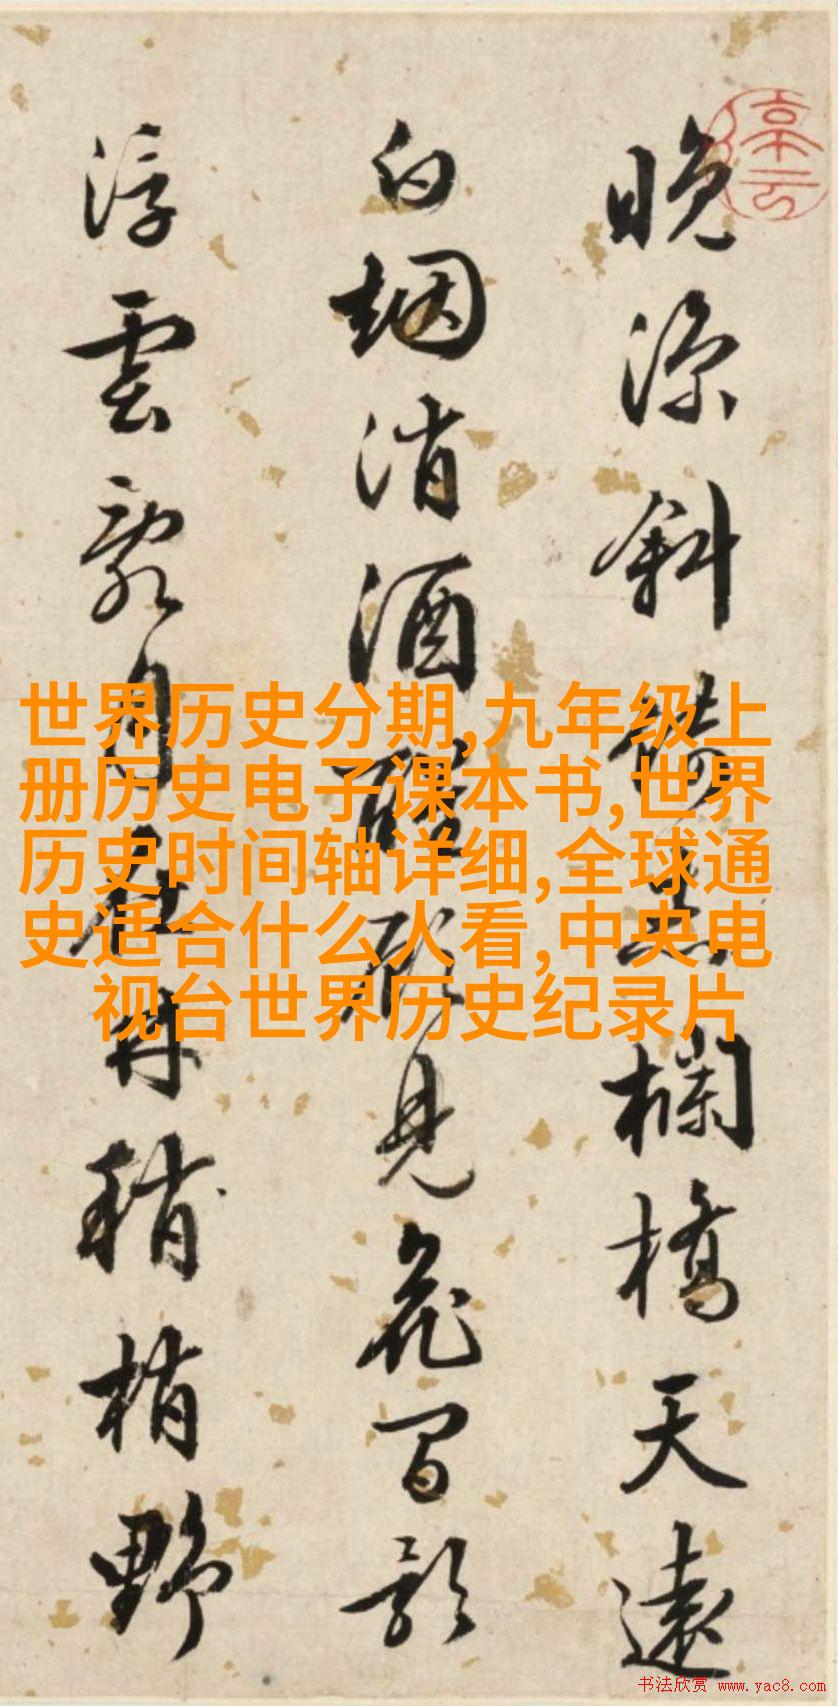 晚涼斜倚欄橋天遠
烟消酒醒見花間影
浮雲月在林稍梢野
世界历史分期,九年级上
册历史电子课本书,世界
历史时间轴详细,全球通
史适合什么人看,中央电
视台世界历史纪录片
书法欣赏 www.yac8.com